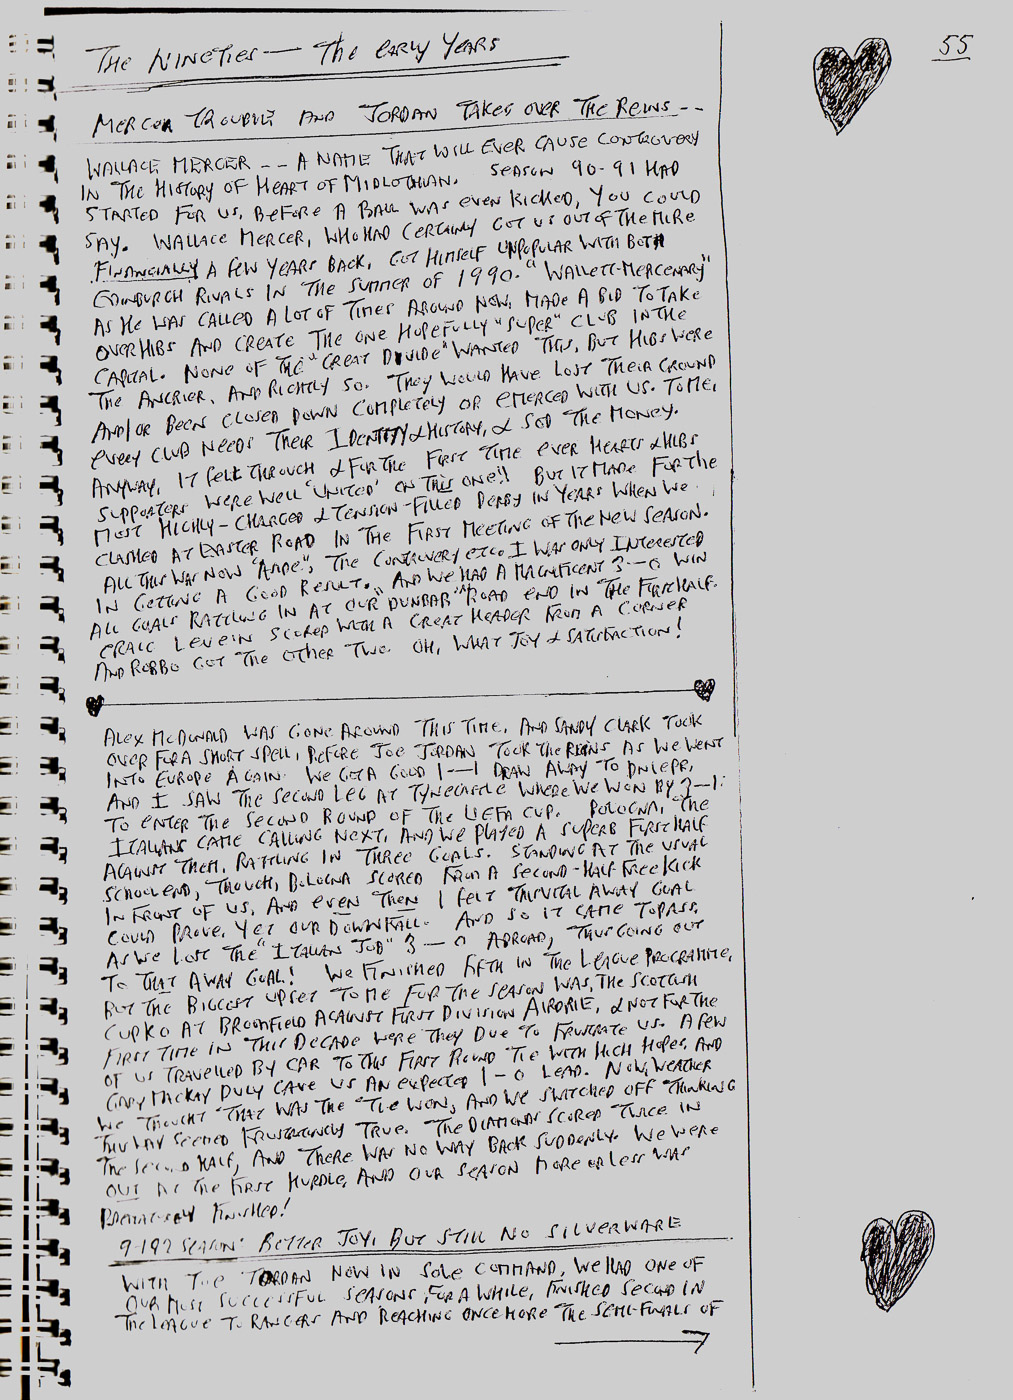 55
THE NINETIES — THE EARLY YEARS
MERCER TROUBLE AND JORDAN TAKES OVER THE REINS --
WALLACE MERCER -- A NAME THAT WILL EVER CAUSE CONTROVERY
IN THE HISTORY OF HEART OF MIDLOTHIAN. SEASON 90-91 HAD
STARTED FOR US, BEFORE A BALL WAS EVEN KICKED, YOU COULD
SAY. WALLACE MERCER, WHO HAD CERTAINLY GOT US OUT OF THE MIRE
FINANCIALLY A FEW YEARS BACK, GOT HIMSELF UNPOPULAR WITH BOTH
EDINBURGH RIVALS IN THE SUMMER OF 1990. "WALLETT-MERCENARY"
AS HE WAS CALLED A LOT OF TIMES AROUND NOW, MADE A BID TO TAKE
OVER HIBS AND CREATE THE ONE HOPEFULLY "SUPER" CLUB IN THE
CAPITAL. NONE OF THE "GREAT DIVIDE" WANTED THIS, BUT HIBS WERE
THE ANGRIER, AND RIGHTLY SO. THEY WOULD HAVE LOST THEIR GROUND
AND/OR BEEN CLOSED DOWN COMPLETELY OR EMERGED WITH US. TO ME,
EVERY CLUB NEEDS THEIR IDENTITY & HISTORY, & SOD THE MONEY.
ANYWAY, IT FELL THROUGH & FOR THE FIRST TIME EVER HEARTS & HIBS
SUPPORTERS WERE WELL 'UNITED' ON THIS ONE!! BUT IT MADE FOR THE
MOST HIGHLY-CHARGED & TENSION-FILLED DERBY IN YEARS WHEN WE
CLASHED AT EASTER ROAD IN THE FIRST MEETING OF THE NEW SEASON.
ALL THIS WAS NOW "ASIDE", THE CONTROVERY ETC. I WAS ONLY INTERESTED
IN GETTING A GOOD RESULT. AND WE HAD A MAGNIFICENT 3-0 WIN
ALL GOALS RATTLING IN AT OUR "DUNBAR" ROAD END IN THE FIRST HALF.
CRAIG LEVEIN SCORED WITH A GREAT HEADER FROM A CORNER
AND ROBBO GOT THE OTHER TWO. OH, WHAT JOY & SATISFACTION!
ALEX McDONALD WAS GONE AROUND THIS TIME, AND SANDY CLARK TOOK
OVER FOR A SHORT SPELL, BEFORE JOE JORDAN TOOK THE REINS AS WE WENT
INTO EUROPE AGAIN. WE GOT A GOOD 1-1 DRAW AWAY TO DNIEPR,
AND I SAW THE SECOND LEG AT TYNECASTLE WHERE WE WON BY 3-1.
TO ENTER THE SECOND ROUND OF THE UEFA CUP. BOLOGNA, THE
ITALIANS CAME CALLING NEXT, AND WE PLAYED A SUPERB FIRST HALF
AGAINST THEM, RATTLING IN THREE GOALS. STANDING AT THE USUAL
SCHOOL END, THOUGH, BOLOGNA SCORED FROM A SECOND-HALF FREE KICK
IN FRONT OF US, AND EVEN THEN I FELT THIS VITAL AWAY GOAL
COULD PROVE, YET OUR DOWNFALL. AND SO IT CAME TO PASS,
AS WE LOST THE "ITALIAN JOB" 3-0 ABROAD, THUS GOING OUT
TO THAT AWAY GOAL! WE FINISHED FIFTH IN THE LEAGUE PROGRAMME,
BUT THE BIGGEST UPSET TO ME FOR THE SEASON WAS, THE SCOTTISH
CUP KO AT BROOMFIELD AGAINST FIRST DIVISION AIRDRIE, & NOT FOR THE
FIRST TIME IN THIS DECADE WERE THEY DUE TO FRUSTRATE US. A FEW
OF US TRAVELLED BY CAR TO THIS FIRST ROUND TIE WITH HIGH HOPES, AND
GARY MACKAY DULY GAVE US AN EXPECTED 1-0 LEAD. NOW, WEATHER
WE THOUGHT THAT WAS THE TIE WON, AND WE SWITCHED OFF THINKING
THIS WAY SEEMED FRUSTRATINGLY TRUE. THE DIAMONDS SCORED TWICE IN
THE SECOND HALF, AND THERE WAS NO WAY BACK SUDDENLY. WE WERE
OUT AT THE FIRST HURDLE, AND OUR SEASON MORE OR LESS WAS
FINISHED!
91-92 SEASON: BETTER JOY, BUT STILL NO SILVERWARE
WITH JOE JORDAN NOW IN SOLE COMMAND, WE HAD ONE OF
OUR MOST SUCCESSFUL SEASONS, FOR A WHILE, FINISHED SECOND IN
THE LEAGUE TO RANGERS AND REACHING ONCE MORE THE SEMI-FINALS OF